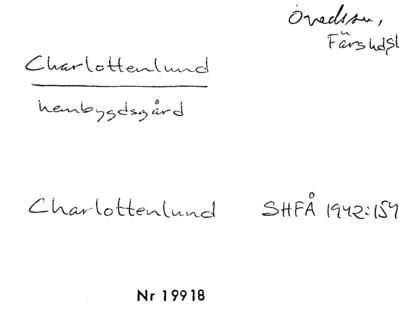 Övedssn,
Färs hdsl
Charlottenlund
hembygdsgård
Charlottenlund SHFÅ 1942:154
Nr 19918